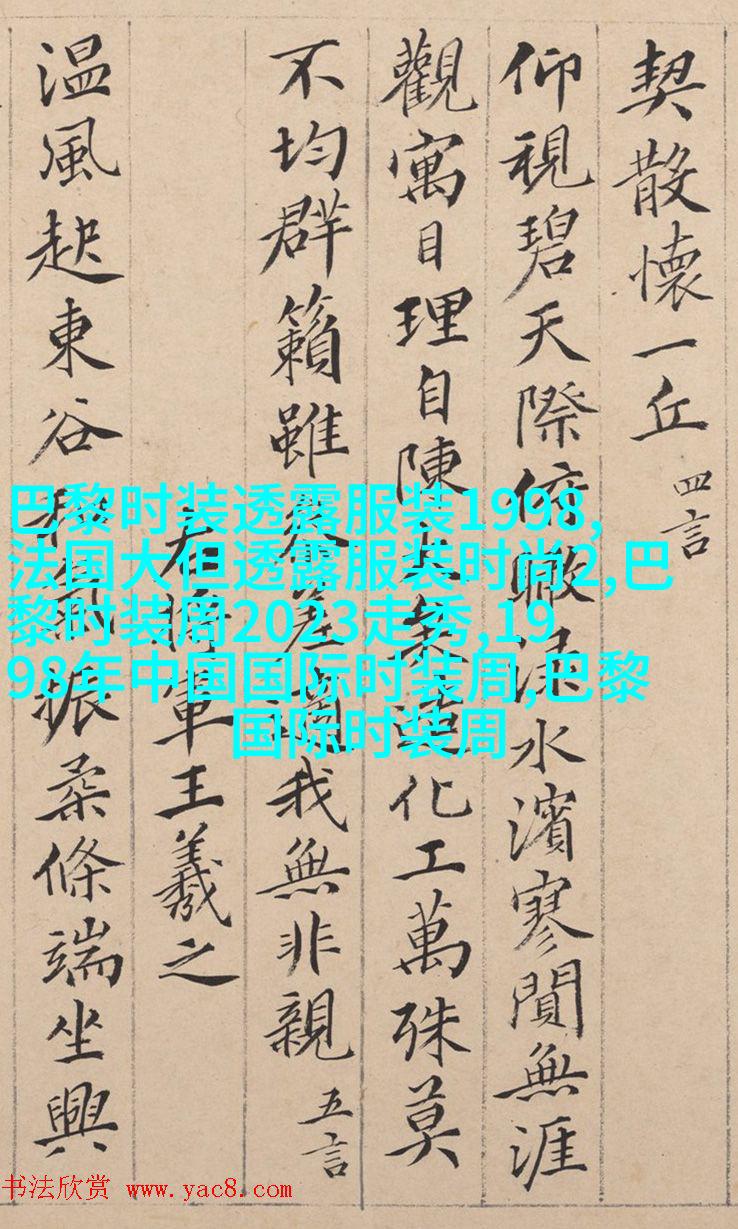 契散懷一丘 四言
仰視碧天際俯瞰淥水濱寥閴無涯
觀寓目理自陳大矣造化工萬殊莫
不均群籟雖參差適我無非親 五言
右將軍王羲之
温風起東谷和氣振柔條端坐興
巴黎时装透露服装1998,
法国大但透露服装时尚2,巴
黎时装周2023走秀,19
98年中国国际时装周,巴黎
国际时装周
书法欣赏 www.yac8.com